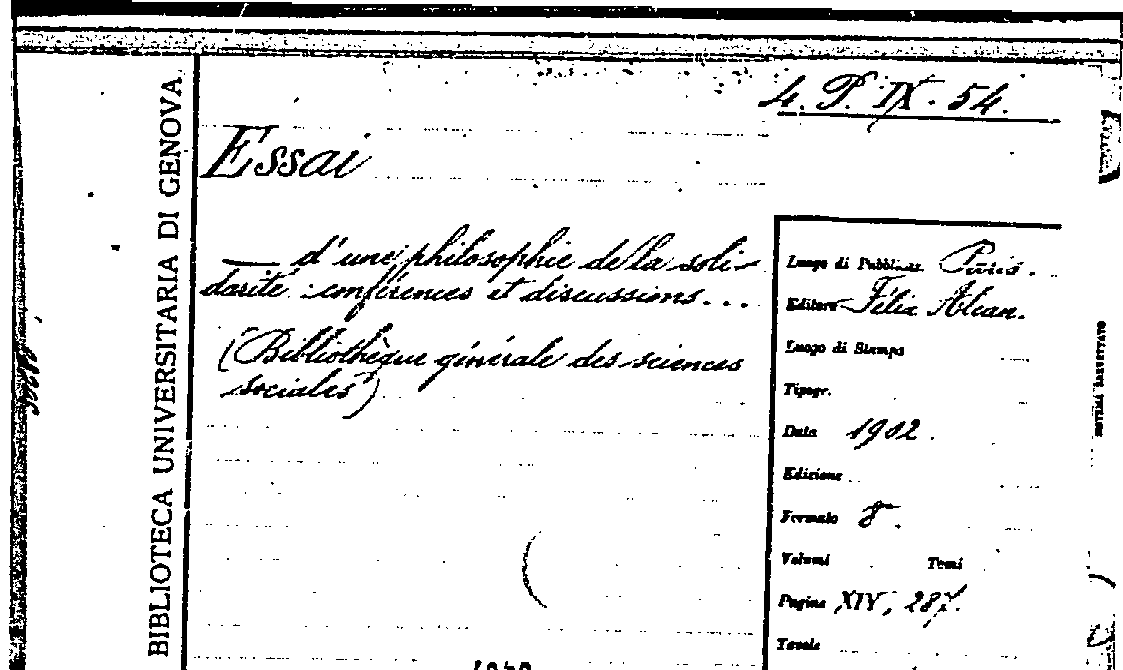 4. P. IX. 54.
BIBLIOTECA UNIVERSITARIA DI GENOVA
Essai
— d'une philosophie de la soli-
darité : conférences et discussions...
(Bibliothèque générale des sciences
sociales)
Luogo di Pubblicaz. Paris.
Editore Félix Alcan.
Luogo di Stampa
Tipogr.
Data 1902.
Edizione
Formato 8°.
Volumi Tomi
Pagine XIV, 287.
Tavole